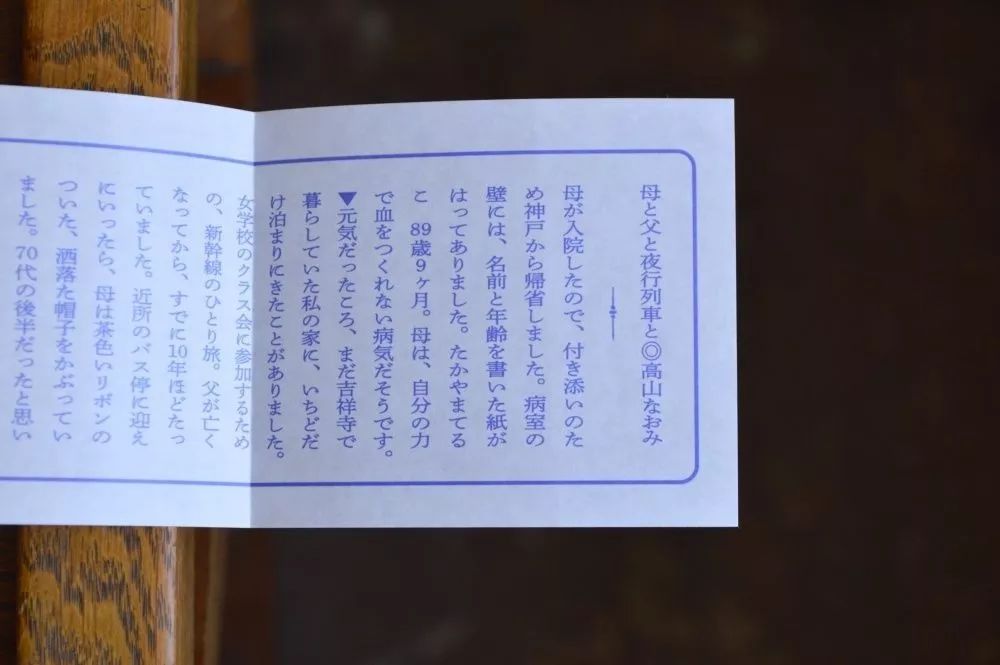 母と父と夜行列車と◎高山なおみ
母が入院したので、付き添いのた
め神戸から帰省しました。病室の
壁には、名前と年齢を書いた紙が
はってありました。たかやまてる
こ　89歳9ヶ月。母は、自分の力
で血をつくれない病気だそうです。
▼元気だったころ、まだ吉祥寺で
暮らしていた私の家に、いちどだ
け泊まりにきたことがありました。
女学校のクラス会に参加するため
の、新幹線のひとり旅。父が亡く
なってから、すでに10年ほどたっ
ていました。近所のバス停に迎え
にいったら、母は茶色いリボンの
ついた、洒落た帽子をかぶってい
ました。70代の後半だったと思い